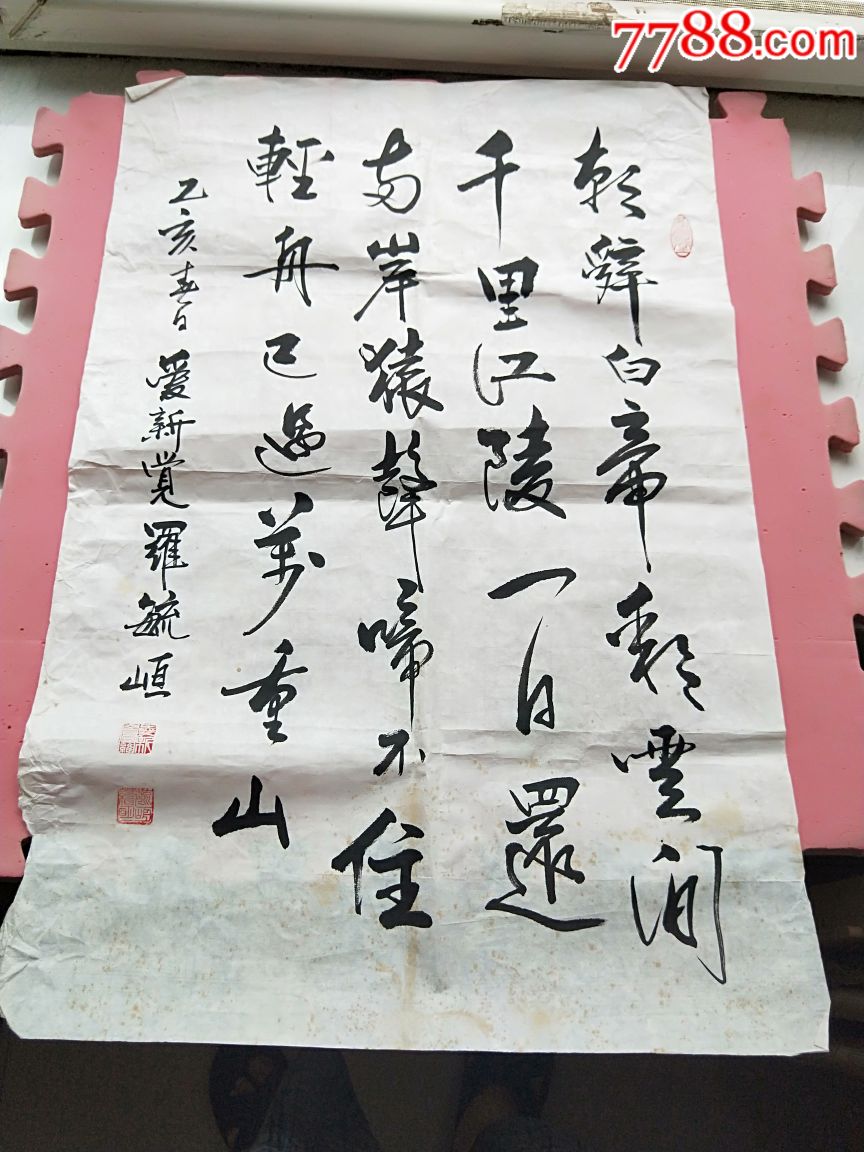 7788.com
朝辭白帝彩雲間
千里江陵一日還
兩岸猿聲啼不住
輕舟已過萬重山
乙亥春日 愛新覺羅毓峘